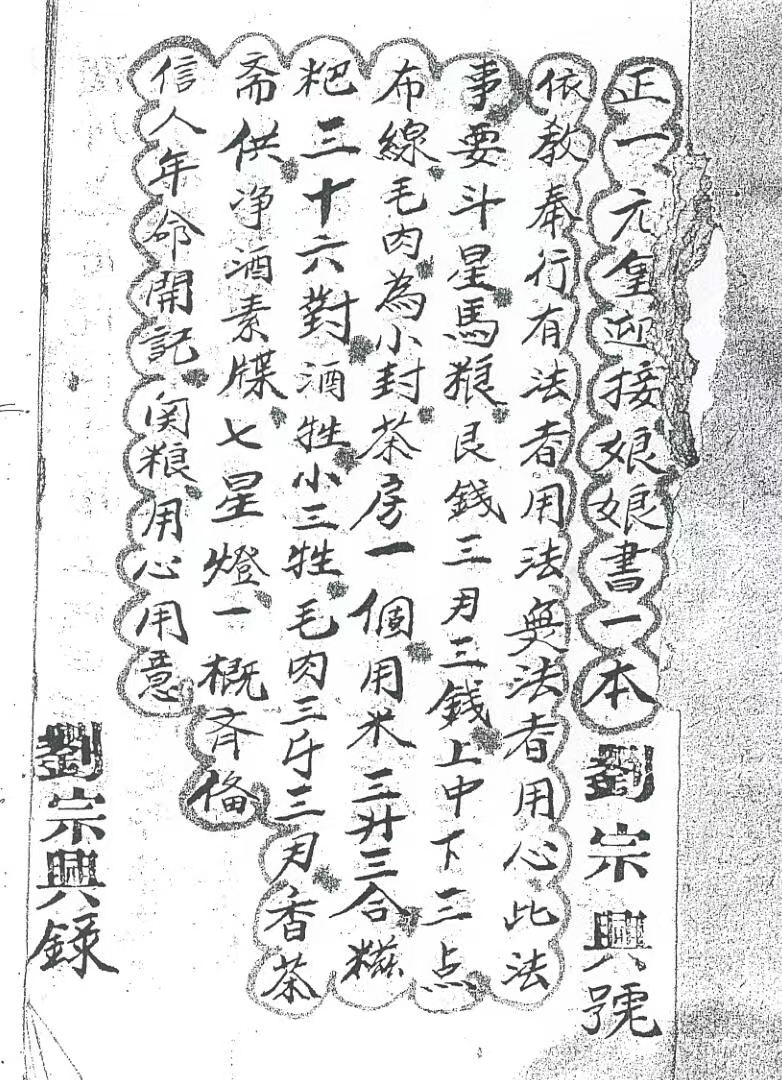 正一元皇迎接娘娘書一本 劉宗興號
依教奉行有法者用法無法者用心此法
事要斗星馬粮良錢三月三錢上中下三点
布線毛肉為小封茶房一個用米三升三合糍
粑三十六對酒牲小三牲毛肉三斤三月香茶
斋供净酒素牒七星燈一概齐俻
信人年命開記関粮用心用意
劉宗興錄